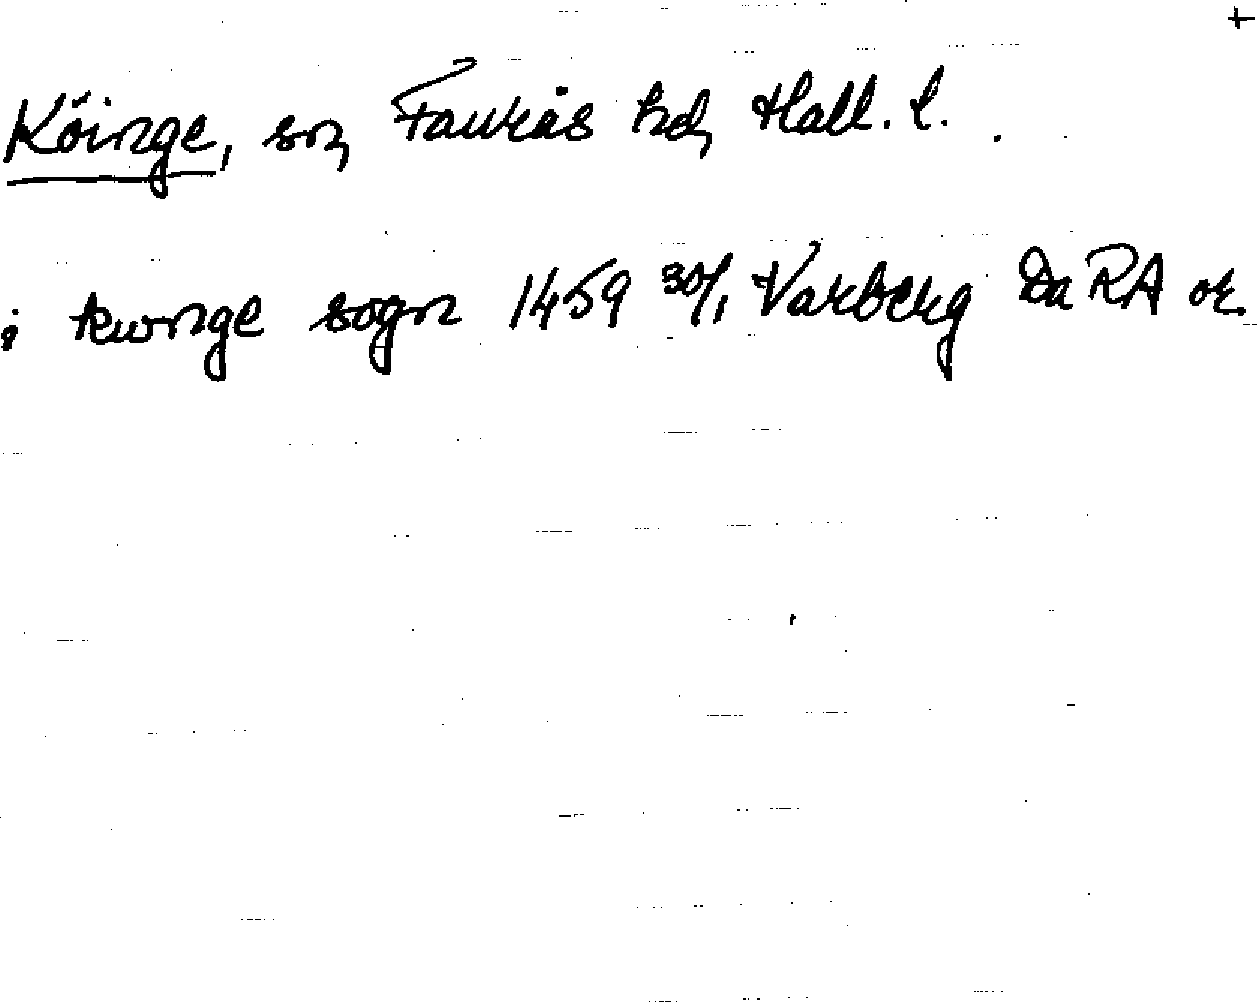 +
Köinge, sn, Faurås hd, Hall. l.
i kwnge sogn 1459 30/1 Varberg Da RA or.